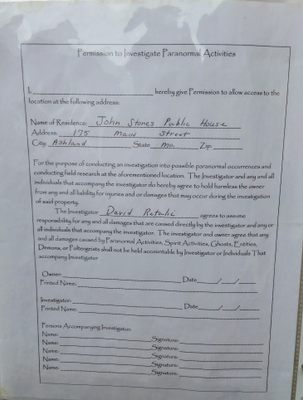 Permission to Investigate Paranormal Activities
I, hereby give Permission to allow access to the
location at the following address:
Name of Residence: John Stones Public House
Address: 175 Main Street
City: Ashland State: Ma. Zip:
For the purpose of conducting an investigation into possible paranormal occurrences and
conducting field research at the aforementioned location. The Investigator and any and all
individuals that accompany the investigator do hereby agree to hold harmless the owner
from any and all liability for injuries and or damages that may occur during the investigation
of said property.
The Investigator David agrees to assume
responsibility for any and all damages that are caused directly by the investigator and any or
all individuals that accompany the investigator. The investigator and owner agree that any
and all damages caused by Paranormal Activities, Spirit Activities, Ghosts, Entities,
Demons, or Poltergeists shall not be held accountable by Investigator or Individuals That
accompany Investigator
Owner: Date / /
Printed Name:
Investigator: Date / /
Printed Name:
Persons Accompanying Investigator:
Name: Signature:
Name: Signature:
Name: Signature:
Name: Signature:
Name: Signature: